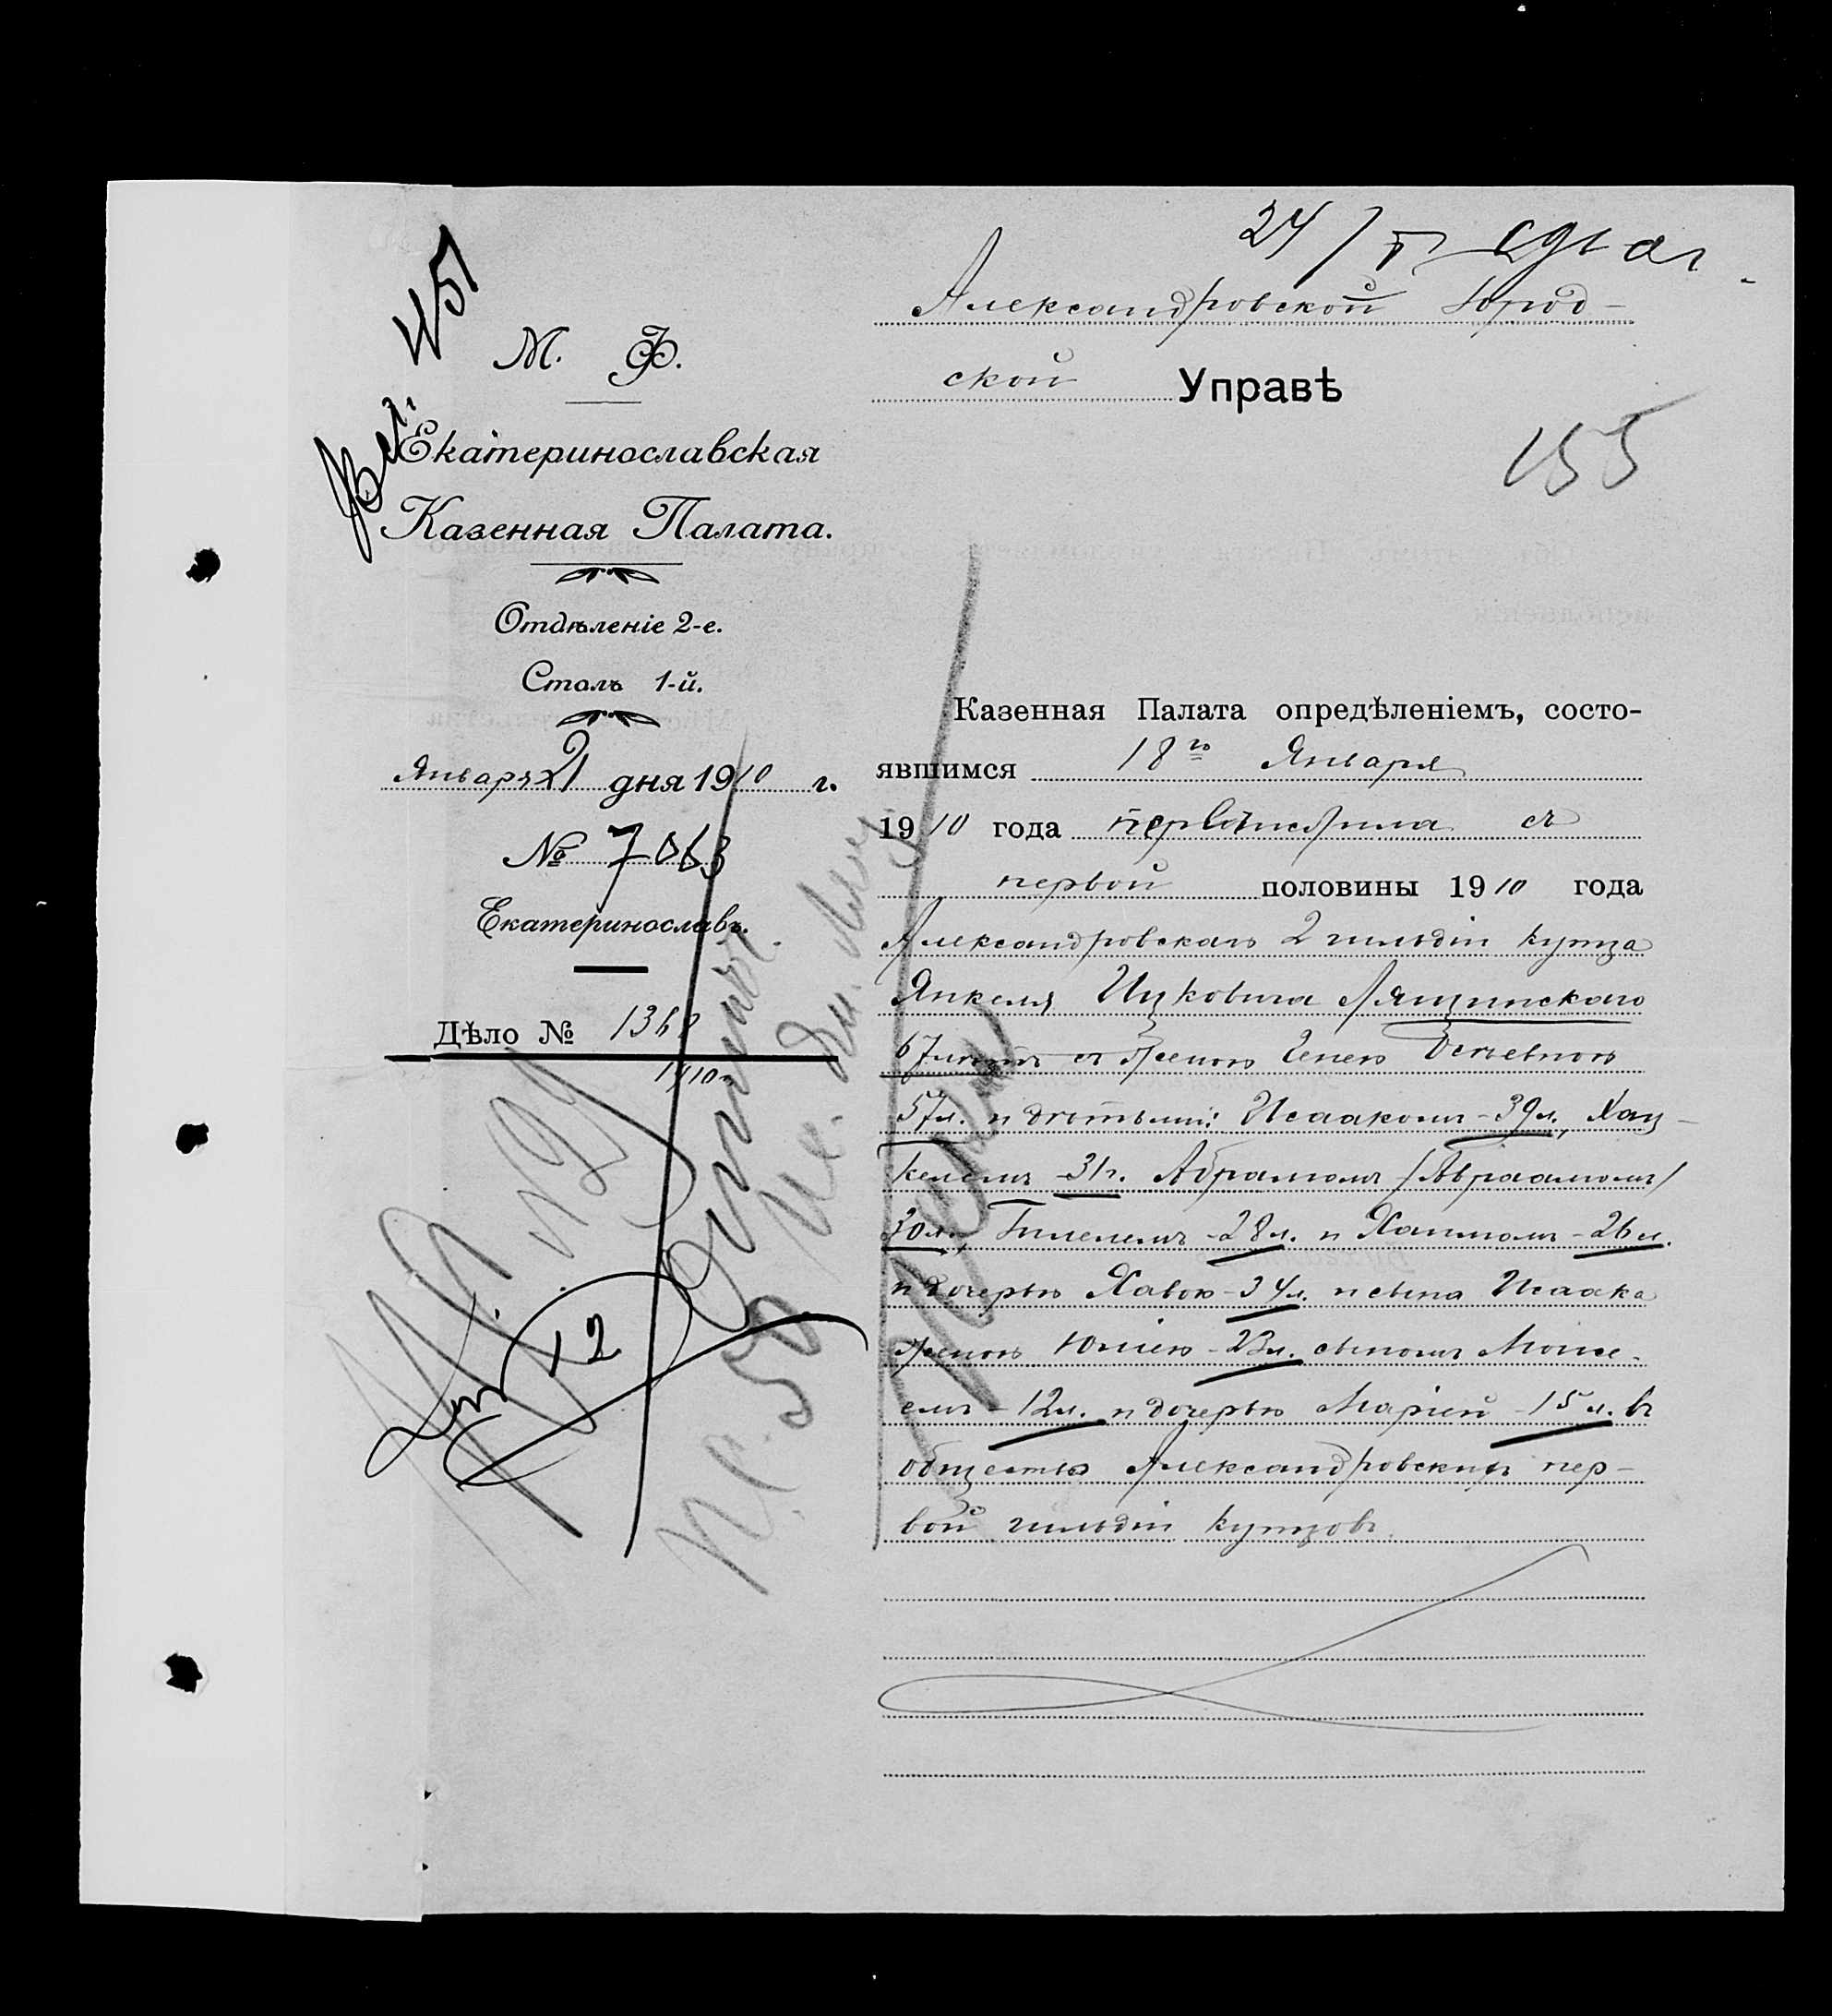 24/I
Александровской Город-
ской Управѣ
155
Вх. 451
М. Ф.
Екатеринославская
Казенная Палата.
Отдѣленіе 2-е.
Столъ 1-й.
Января 21 дня 1910 г.
№ 7063
Екатеринославъ.
Дѣло №
1910 г
12
Казенная Палата опредѣленіемъ, состо-
явшимся 18го Января
1910 года перечислила съ
первой половины 1910 года
Александровскаго 2 гильдіи купца
Янкеля Ицковича Лящинскаго
67 лѣтъ съ женою
57 л. и дѣтьми: Исаакомъ - 39 л., Хац-
келемъ - 31 г. Абрамомъ /Авраамомъ/
30 л., Гилелемъ - 28 л. и Хаимомъ - 26 л.
и дочерью Хавою - 34 л. и сына Исаака
женою Юліею - 23 л. сыномъ Моисе-
емъ - 12 л. и дочерью Маріей - 15 л. въ
общество Александровскихъ пер-
вой гильдіи купцовъ.